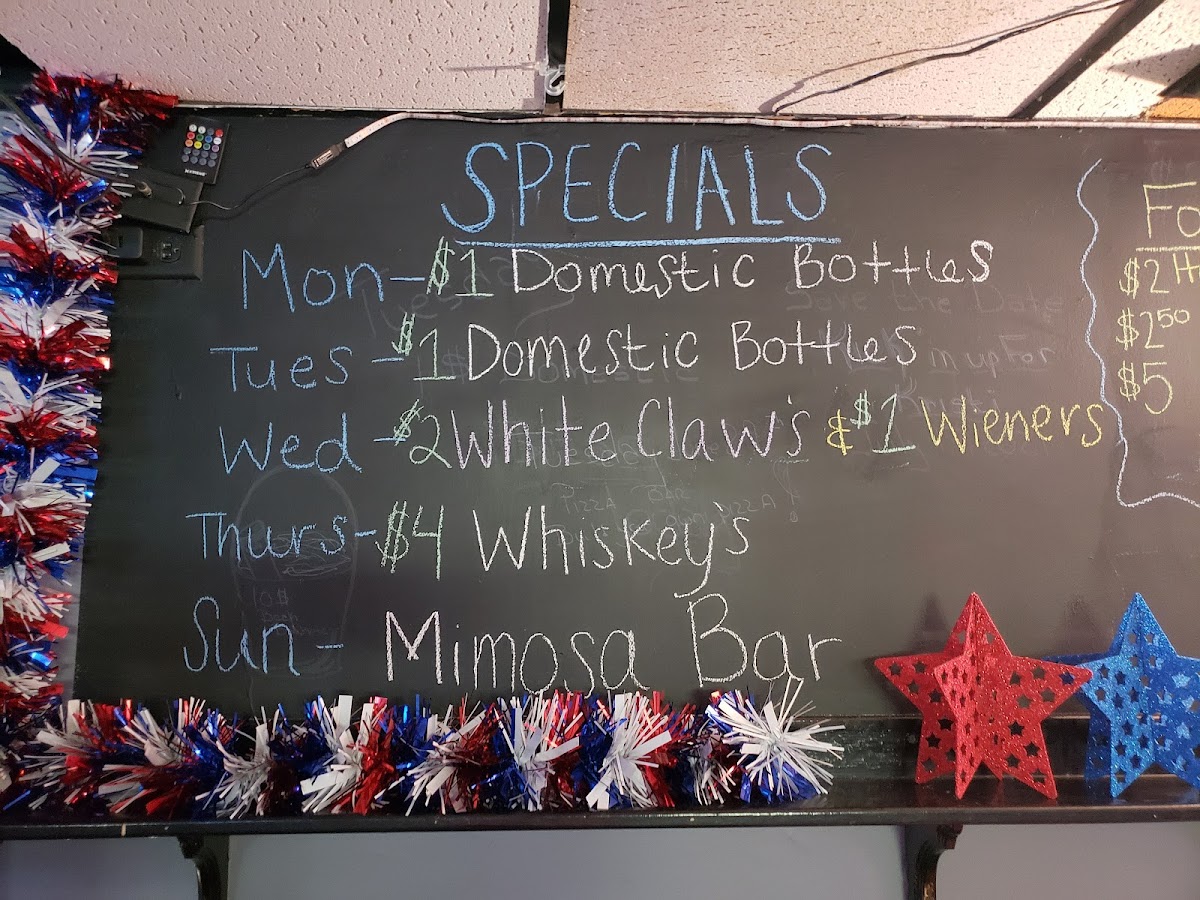 SPECIALS
Mon-$1 Domestic Bottles
Tues-$1 Domestic Bottles
Wed-$2 White Claw's &$1 Wieners
Thurs-$4 Whiskey's
Sun- Mimosa Bar
Fo
$2 H
$2⁵⁰
$5
Save the Date
PIZZA BAR